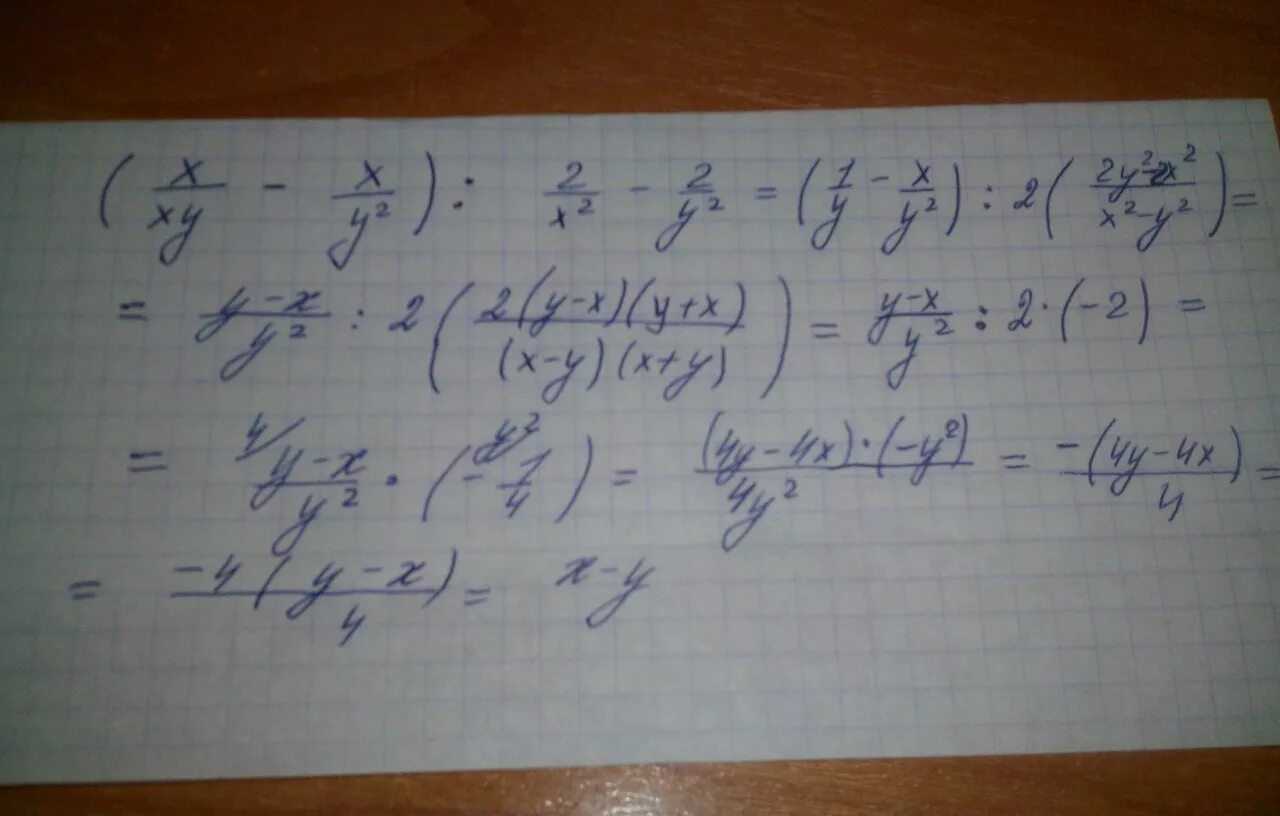 ( x/xy - x/y² ) : 2/x² - 2/y² = ( 1/y - x/y² ) : 2 ( 2y²-2x² / x²-y² ) =
= y-x/y² : 2 ( 2(y-x)(y+x) / (x-y)(x+y) ) = y-x/y² : 2·(-2) =
= 4/ y-x/y² · ( - y²/ 1/4 ) = (4y-4x)·(-y²) / 4y² = -(4y-4x) / 4 =
= -4(y-x) / 4 = x-y